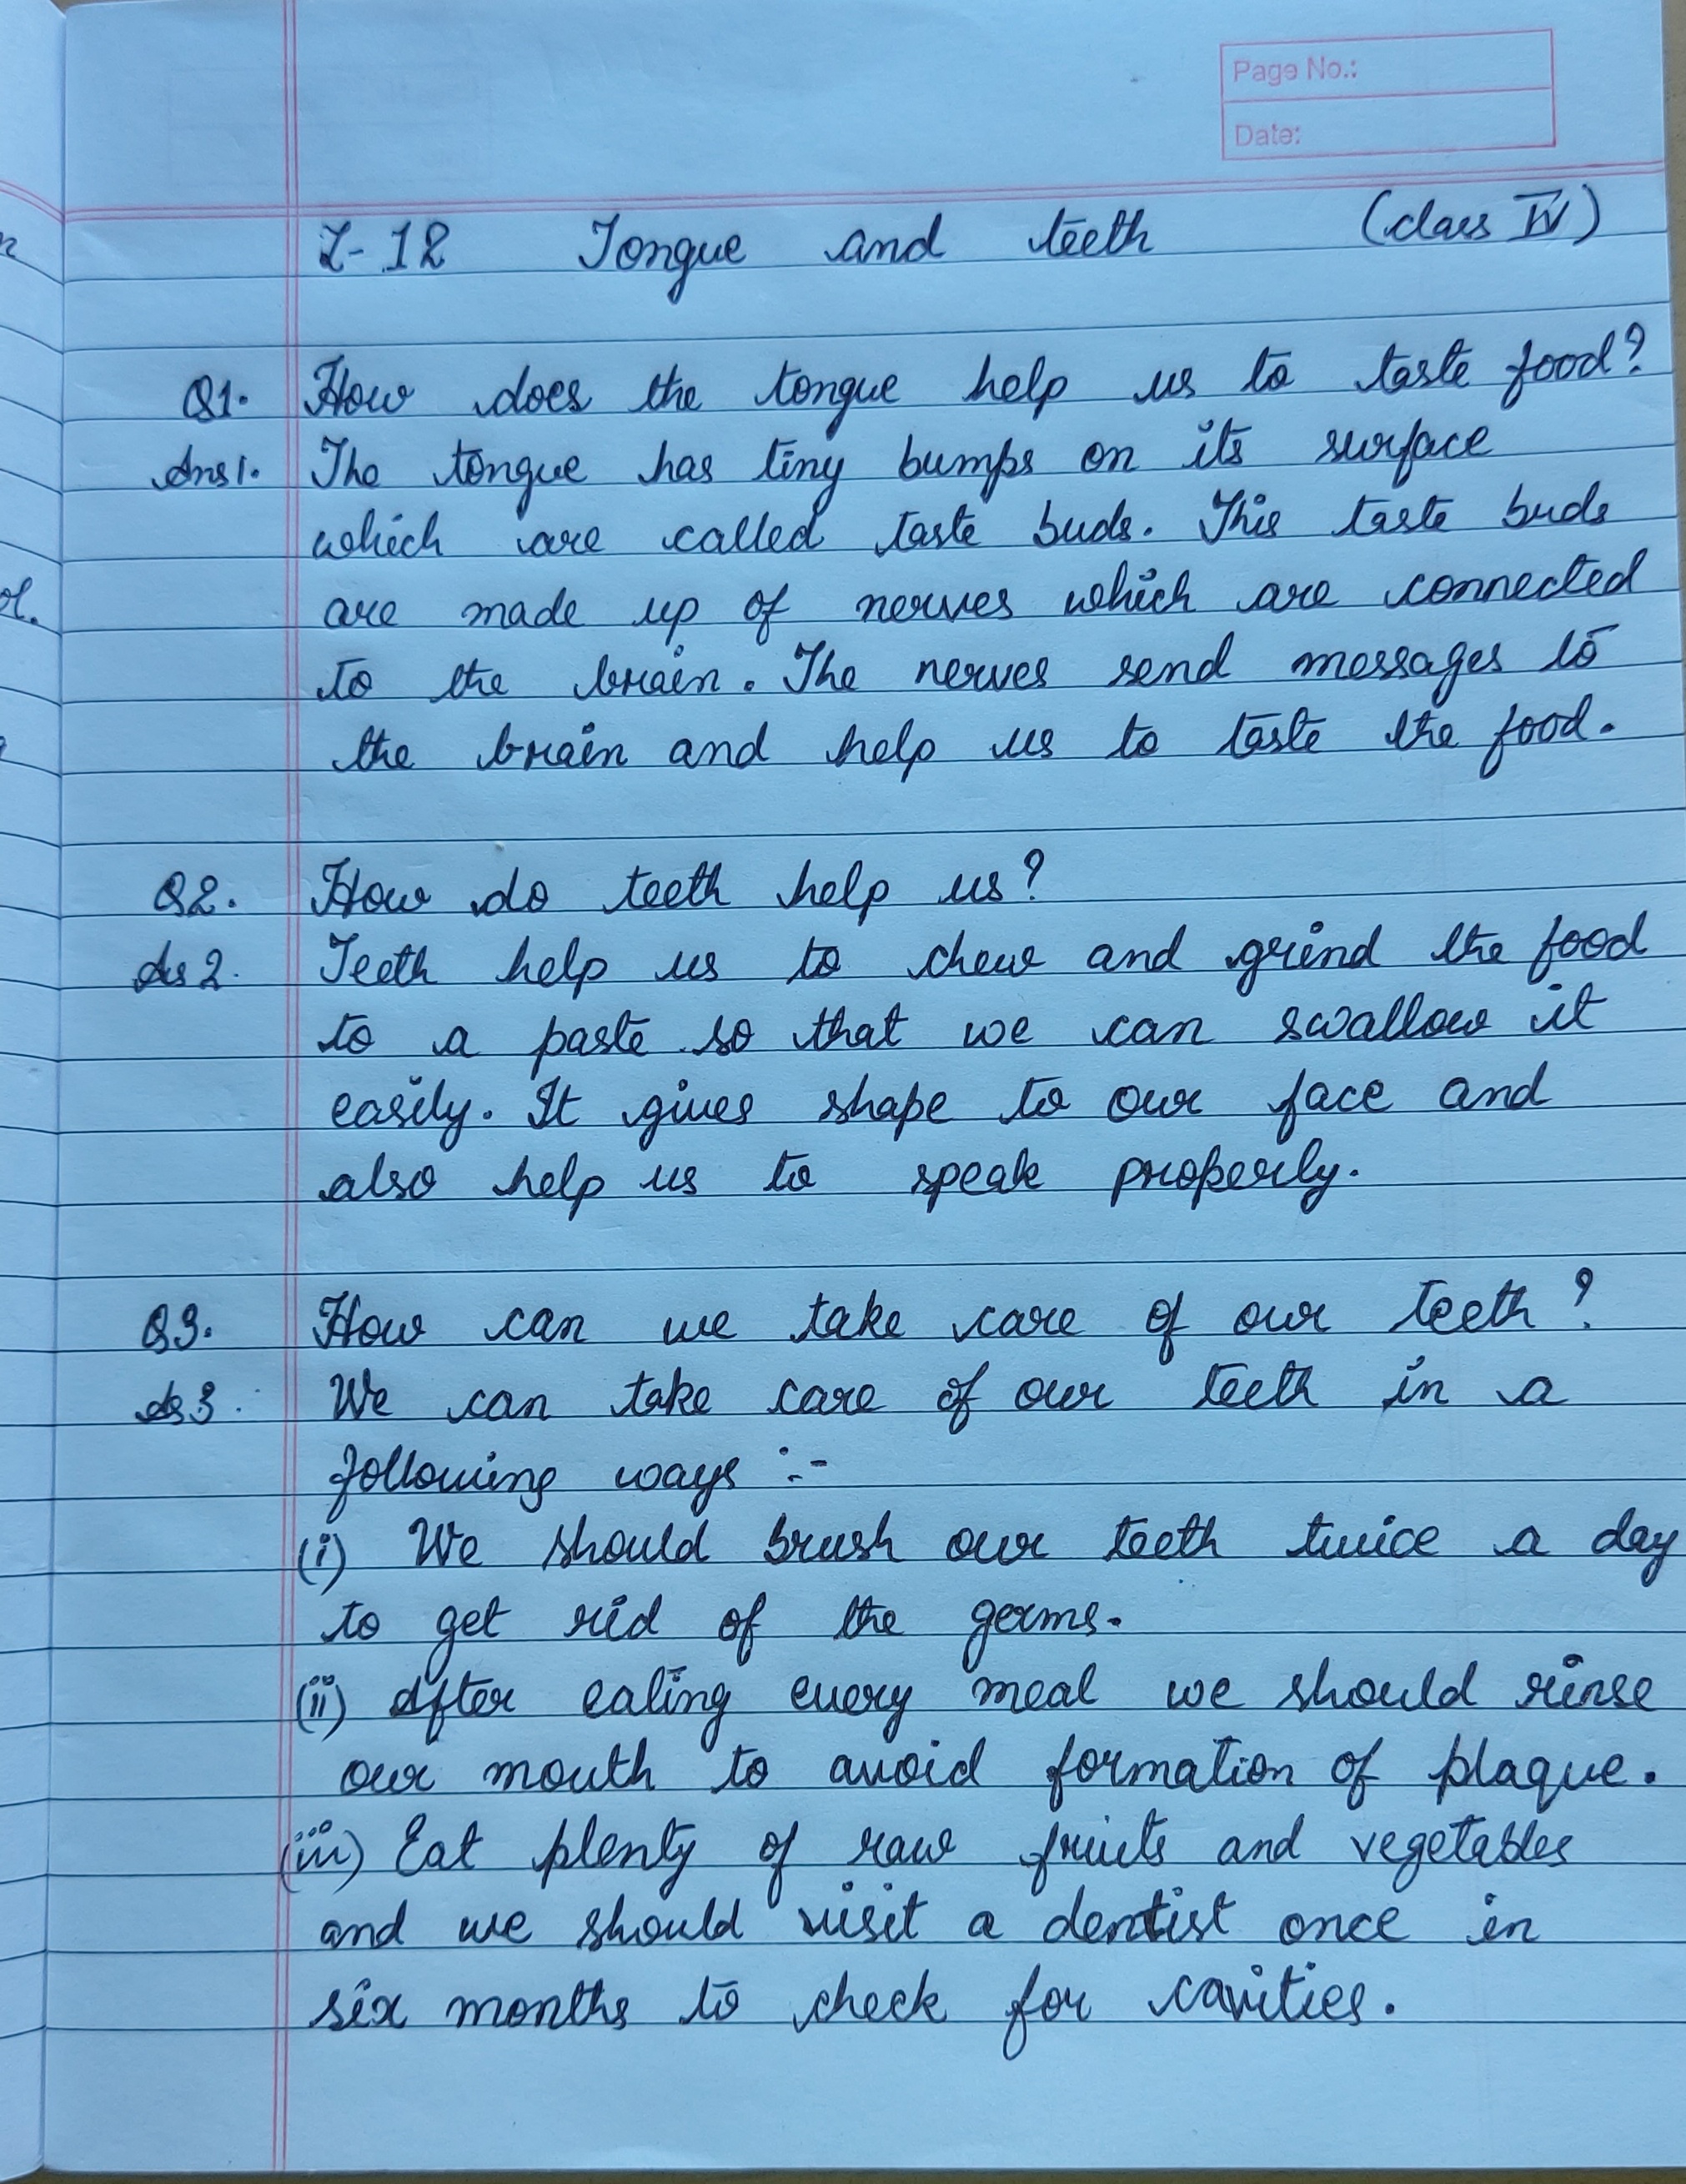 Page No.:
Date:
L-12 Tongue and teeth (class IV)
Q1. How does the tongue help us to taste food?
Ans1. The tongue has tiny bumps on its surface
which are called taste buds. This taste buds
are made up of nerves which are connected
to the brain. The nerves send messages to
the brain and help us to taste the food.
Q2. How do teeth help us?
As 2. Teeth help us to chew and grind the food
to a paste so that we can swallow it
easily. It gives shape to our face and
also help us to speak properly.
Q3. How can we take care of our teeth?
As 3. We can take care of our teeth in a
following ways :-
(i) We should brush our teeth twice a day
to get rid of the germs.
(ii) After eating every meal we should rinse
our mouth to avoid formation of plaque.
(iii) Eat plenty of raw fruits and vegetables
and we should visit a dentist once in
six months to check for cavities.